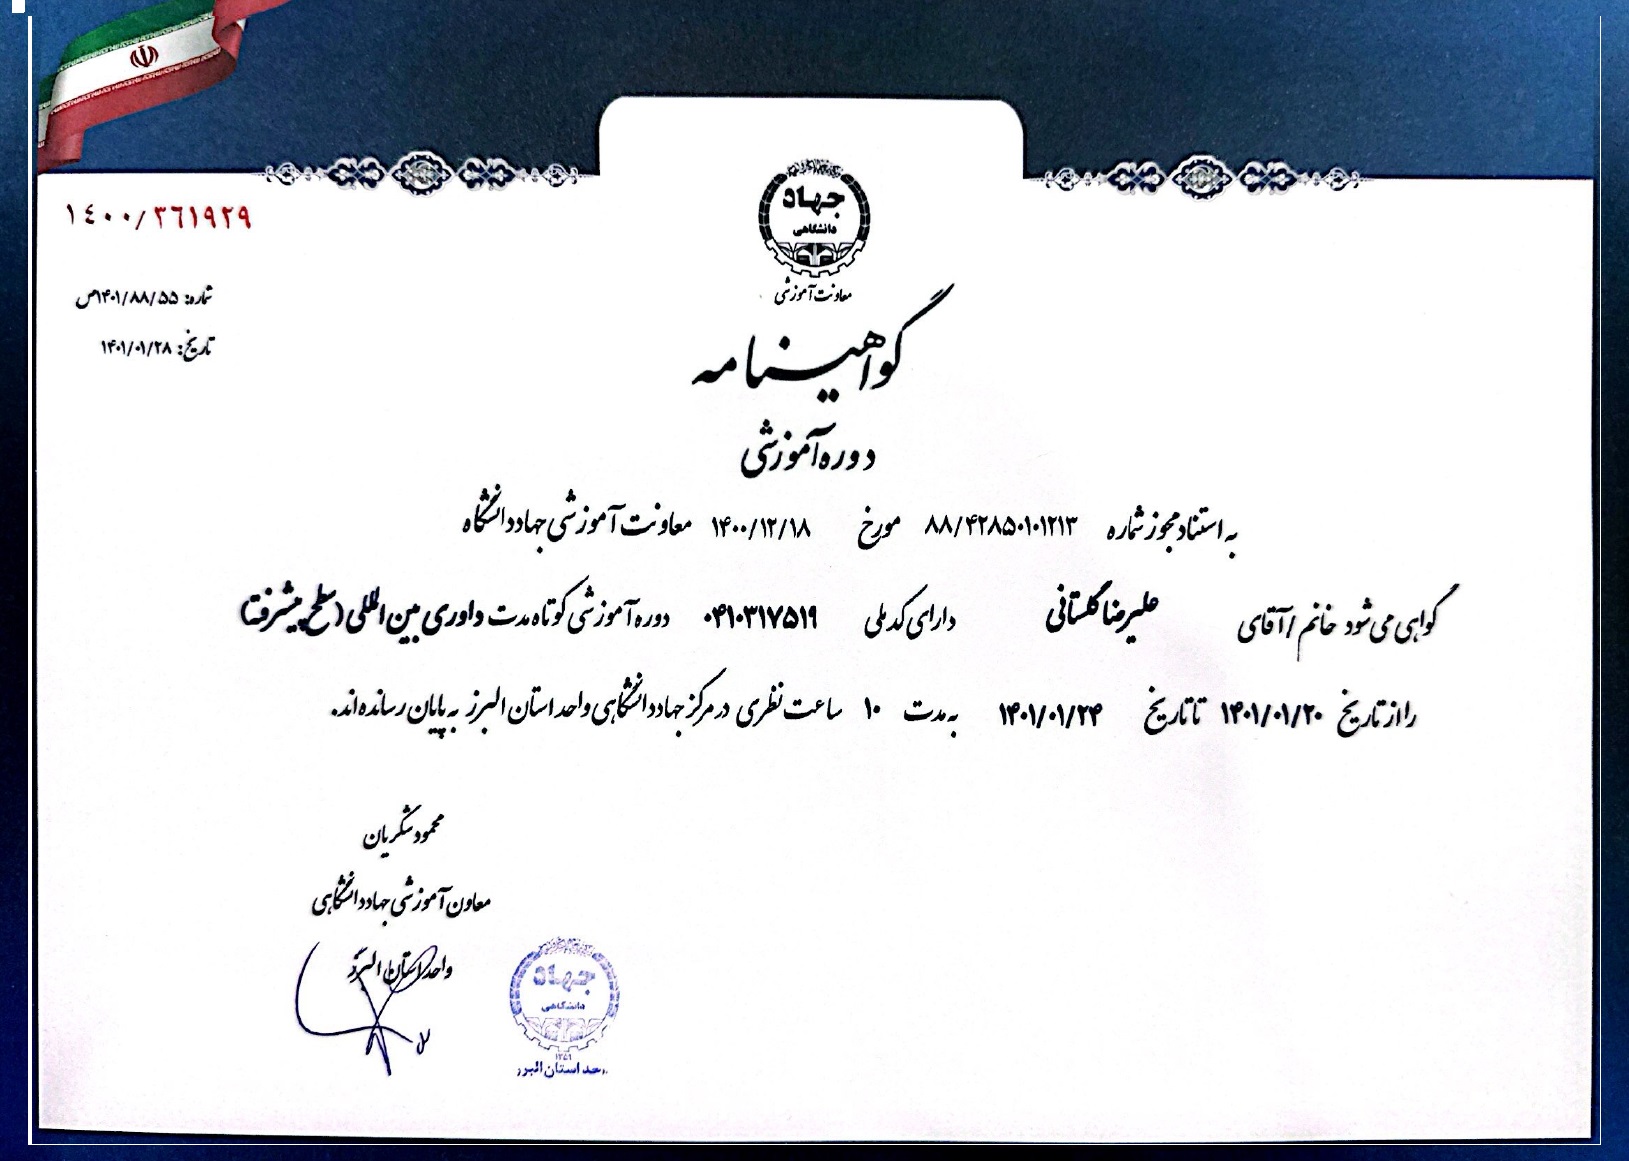 ۱۴۰۰/۳۶۱۹۲۹
شماره: ۱۴۰۱/۸۸/۵۵ص
تاریخ: ۱۴۰۱/۰۱/۲۸
جهاد
دانشگاهی
معاونت آموزشی
گواهینامه
دوره آموزشی
به استناد مجوز شماره ۸۸/۴۲۸۵۰۱۰۱۲۱۳ مورخ ۱۴۰۰/۱۲/۱۸ معاونت آموزشی جهاددانشگاه
گواهی می شود خانم / آقای علیرضا گلستانی دارای کد ملی ۰۴۱۰۳۱۷۵۱۹ دوره آموزشی کوتاه مدت داوری بین المللی (سطح پیشرفته)
را از تاریخ ۱۴۰۱/۰۱/۲۰ تا تاریخ ۱۴۰۱/۰۱/۲۴ به مدت ۱۰ ساعت نظری در مرکز جهاددانشگاهی واحد استان البرز به پایان رسانده اند.
محمود شکریان
معاون آموزشی جهاددانشگاهی
واحد استان البرز
جهاد
دانشگاهی
۱۳۵۹
واحد استان البرز